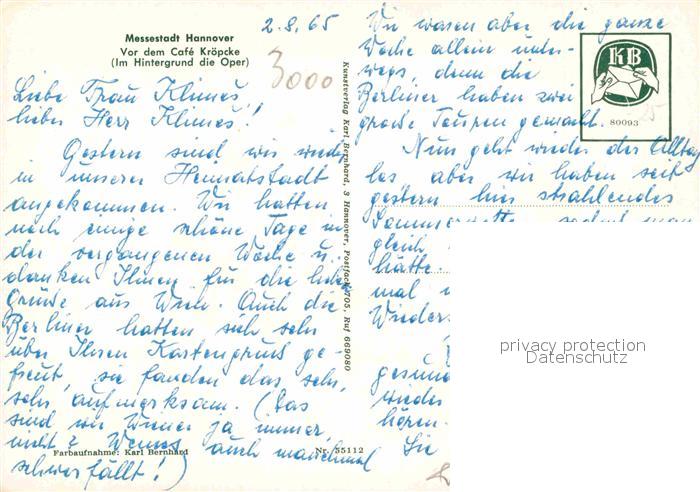 Messestadt Hannover
Vor dem Café Kröpcke
(Im Hintergrund die Oper)
2.8.65
3000
Liebe Frau Klimes,
lieber Herr Klimes!
Gestern sind wir wieder
in unserer Heimatstadt
angekommen. Wir hatten
noch einige schöne Tage in
der vergangenen Woche u.
danken Ihnen für die lieben
Grüße aus Wien. Auch die
Berliner hatten sich sehr
über Ihren Kartengruß ge-
freut, sie fanden das sehr,
sehr aufmerksam. (Das
sind wir Wiener ja immer,
nicht? Wenns auch manchmal
schwerfällt!)
Farbaufnahme: Karl Bernhard
Nr. 55112
Kunstverlag Karl Bernhard, 3 Hannover, Postfach 705, Ruf 669080
Wir waren aber die ganze
Woche allein unter-
wegs, denn die
Berliner haben zwei
große Touren gemacht.
Nun geht wieder der Alltag
los aber wir haben seit
gestern hier strahlendes
Sommerwetter, sodaß man
gleich
hätte.
mal
Wieders
gesund
wieder
hören.
Sie
KB
80093
privacy protection
Datenschutz